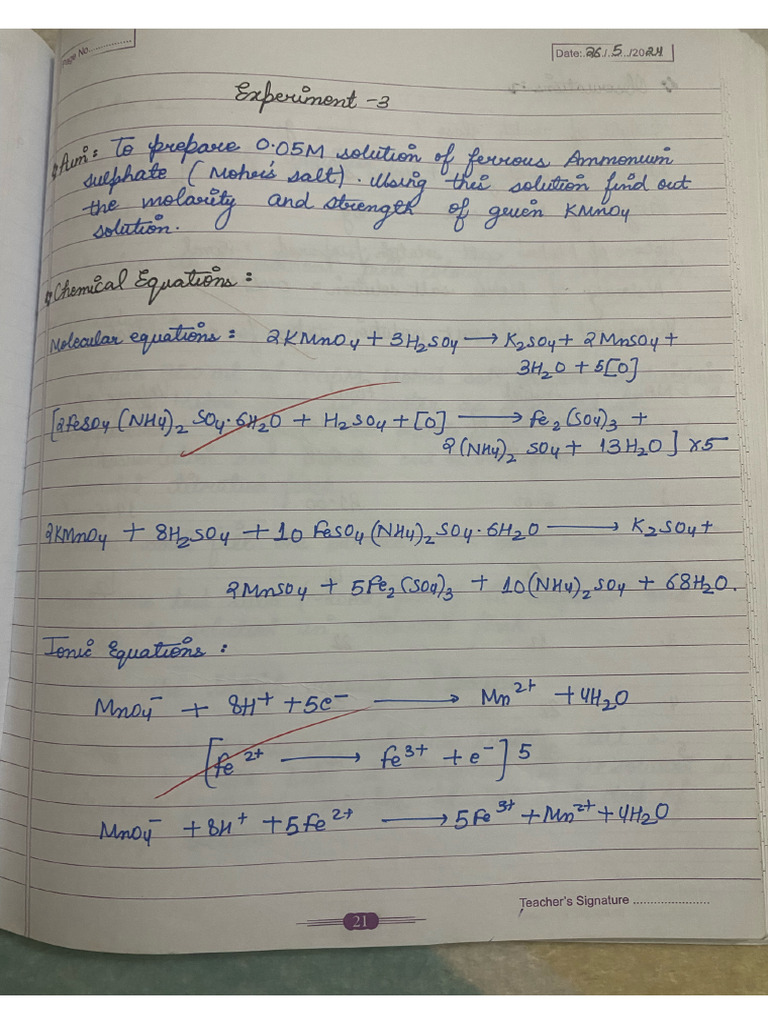 Page No..............
Date: 26/5/2024
Experiment -3
Aim: To prepare 0.05M solution of ferrous Ammonium
sulphate (Mohr's salt). Using this solution find out
the molarity and strength of given KMnO4
solution.
Chemical Equations:
Molecular equations: 2KMnO4 + 3H2SO4 → K2SO4 + 2MnSO4 +
3H2O + 5[O]
[2FeSO4(NH4)2 SO4·6H2O + H2SO4 + [O] → Fe2(SO4)3 +
2(NH4)2 SO4 + 13H2O] x5
2KMnO4 + 8H2SO4 + 10 FeSO4(NH4)2SO4·6H2O → K2SO4+
2MnSO4 + 5Fe2(SO4)3 + 10(NH4)2SO4 + 68H2O.
Ionic Equations:
MnO4⁻ + 8H⁺ + 5e⁻ → Mn²⁺ + 4H2O
[Fe²⁺ → Fe³⁺ + e⁻] 5
MnO4⁻ + 8H⁺ + 5Fe²⁺ → 5Fe³⁺ + Mn²⁺ + 4H2O
Teacher's Signature ......................
21